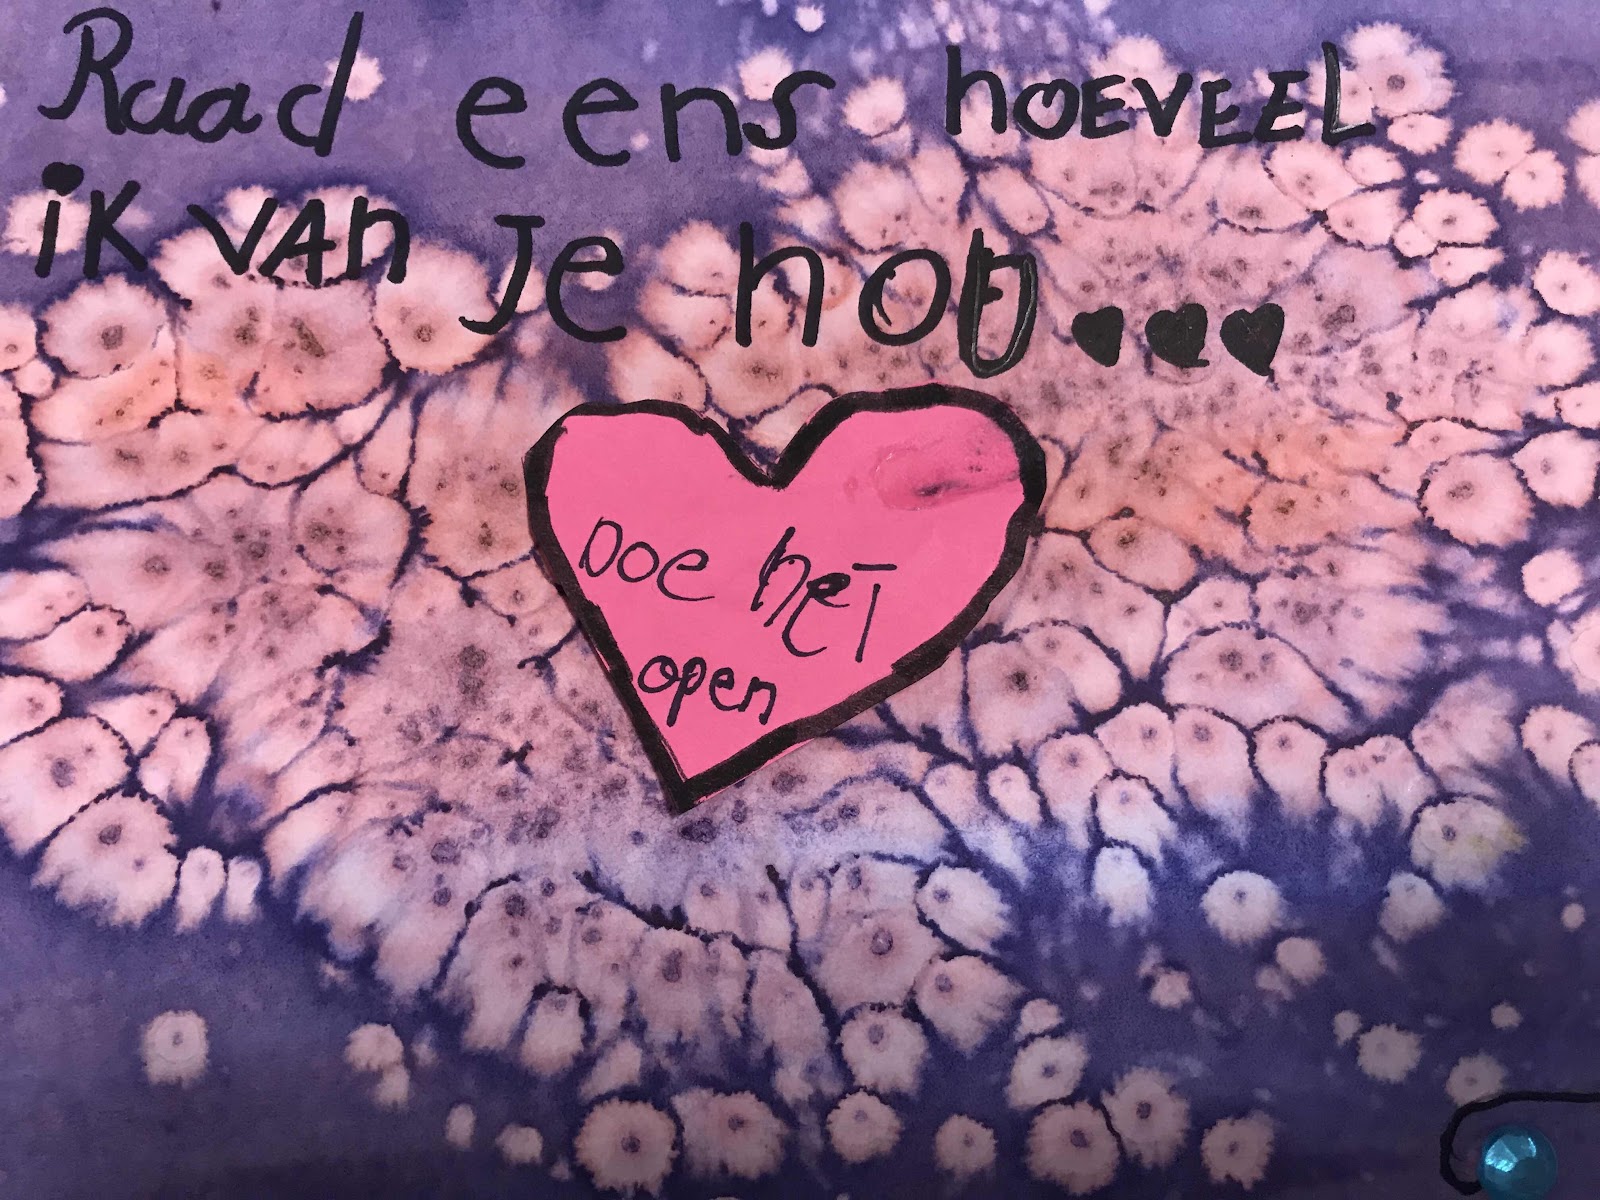 Raad eens hoEVEEL
iK VAn Je hou...
Doe het
open